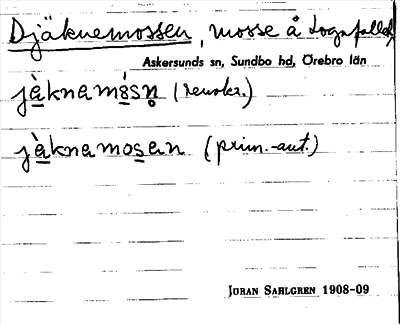 Djäknemossen, mosse å sognafallet
Askersunds sn, Sundbo hd, Örebro län
jàknamósn̥ (renskr.)
jàknamosen (prim.-aut.)
JÖRAN SAHLGREN 1908-09